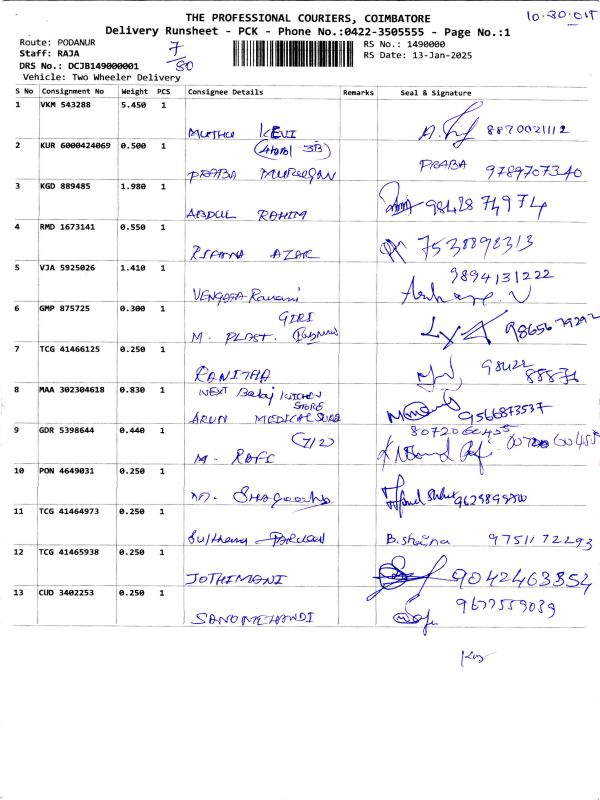 THE PROFESSIONAL COURIERS, COIMBATORE
10-30 OUT
Delivery Runsheet - PCK - Phone No.:0422-3505555 - Page No.:1
Route: PODANUR 7/80 RS No.: 1490000
Staff: RAJA RS Date: 13-Jan-2025
DRS No.: DCJB149000001
Vehicle: Two Wheeler Delivery
S No Consignment No Weight PCS Consignee Details Remarks Seal & Signature
1 VKM 543288 5.450 1
MUTHU 8870021112
2 KUR 6000424069 0.500 1
3B
PRABA MURUGAN PRABA 9789707340
3 KGD 889485 1.980 1
ABDUL RAHIM 98428 74974
4 RMD 1673141 0.550 1
AZAR 7538898313
5 VJA 5925026 1.410 1
9894131222
VENGATA Ramani
6 GMP 875725 0.300 1
GIRI
M. PLAST.
7 TCG 41466125 0.250 1
RANITHA 98422
8 MAA 302304618 0.830 1
NEXT Balaj KITCHEN
STORE
ARUN MEDICAL 9566873537
9 GDR 5398644 0.440 1
(7/2) 8072060455
M. RAFI
10 PON 4649031 0.250 1
M.
11 TCG 41464973 0.250 1
Sulthana B. Shaina 9751172293
12 TCG 41465938 0.250 1
JOTHIMANI 9042463854
13 CUD 3402253 0.250 1
9677559039
SANOMEHANDI